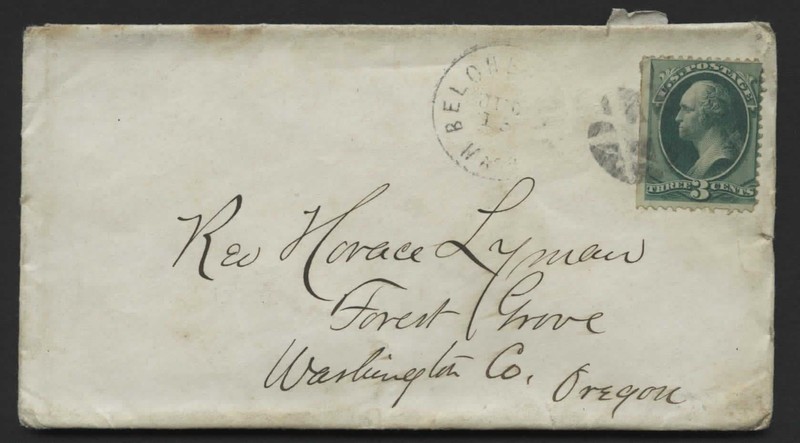 BELOW
U.S. POSTAGE
THREE 3 CENTS
Rev Horace Lyman
Forest Grove
Washington Co. Oregon